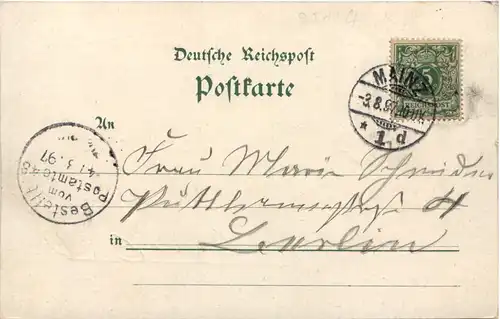 Deutsche Reichspost
Postkarte
5
REICHSPOST
MAINZ
-3.8.97.
* 1 d
Bestellt
vom
Postamte
4. 97
An
Frau Marie Schneider
4
in Berlin